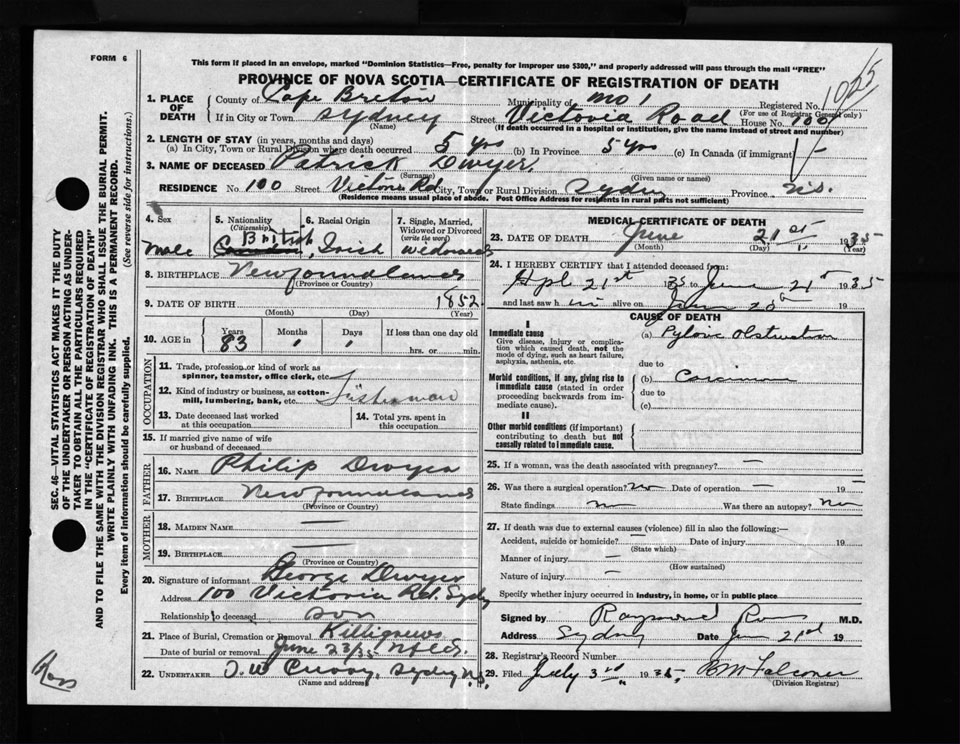 FORM 6
This form if placed in an envelope, marked "Dominion Statistics—Free, penalty for improper use $300," and properly addressed will pass through the mail "FREE"
PROVINCE OF NOVA SCOTIA—CERTIFICATE OF REGISTRATION OF DEATH
1065
1. PLACE OF DEATH
County of Cape Breton Municipality of No 1 Registered No.
(For use of Registrar General only)
If in City or Town Sydney Street Victoria Road House No. 100
(Name) (If death occurred in a hospital or institution, give the name instead of street and number)
2. LENGTH OF STAY (in years, months and days)
(a) In City, Town or Rural Division where death occurred 5 yrs (b) In Province 5 yrs (c) In Canada (if immigrant)
3. NAME OF DECEASED Patrick Dwyer
(Surname) (Given name or names)
RESIDENCE No. 100 Street Victoria Rd City, Town or Rural Division Sydney Province N.S.
(Residence means usual place of abode. Post Office Address for residents in rural parts not sufficient)
4. Sex
Male
5. Nationality
(Citizenship)
British
6. Racial Origin
Irish
7. Single, Married, Widowed or Divorced
(write the word)
Widowed
8. BIRTHPLACE Newfoundland
(Province or Country)
9. DATE OF BIRTH 1852
(Month) (Day) (Year)
10. AGE in
Years Months Days If less than one day old
83 hrs. or min.
OCCUPATION
11. Trade, profession or kind of work as spinner, teamster, office clerk, etc.
12. Kind of industry or business, as cotton-mill, lumbering, bank, etc. Fisherman
13. Date deceased last worked at this occupation
14. Total yrs. spent in this occupation
15. If married give name of wife or husband of deceased
FATHER
16. NAME Philip Dwyer
17. BIRTHPLACE Newfoundland
(Province or Country)
MOTHER
18. MAIDEN NAME —
19. BIRTHPLACE —
(Province or Country)
20. Signature of informant George Dwyer
Address 100 Victoria Rd. Sydney
Relationship to deceased son
21. Place of Burial, Cremation or Removal Killigrews Nfld.
Date of burial or removal June 23/35
22. UNDERTAKER Sydney N.S.
(Name and address)
MEDICAL CERTIFICATE OF DEATH
23. DATE OF DEATH June 21st 1935
(Month) (Day)
24. I HEREBY CERTIFY that I attended deceased from:
Apl 21st 35 to June 21st 1935
and last saw h im alive on June 20th 19
CAUSE OF DEATH
I
Immediate cause
Give disease, injury or complication which caused death, not the mode of dying, such as heart failure, asphyxia, asthenia, etc.
(a) Pyloric Obstruction
due to
Morbid conditions, if any, giving rise to immediate cause (stated in order proceeding backwards from immediate cause).
(b) Carcinoma
due to
(c)
II
Other morbid conditions (if important) contributing to death but not causally related to immediate cause.
25. If a woman, was the death associated with pregnancy? —
26. Was there a surgical operation? no Date of operation — 19
State findings Was there an autopsy? no
27. If death was due to external causes (violence) fill in also the following:—
Accident, suicide or homicide? — Date of injury 19
(State which)
Manner of injury —
(How sustained)
Nature of injury —
Specify whether injury occurred in industry, in home, or in public place
Signed by Raymond Ross M.D.
Address Sydney Date June 21st 19
28. Registrar's Record Number
29. Filed July 3rd 1935
(Division Registrar)
SEC. 46—VITAL STATISTICS ACT MAKES IT THE DUTY
OF THE UNDERTAKER OR PERSON ACTING AS UNDER-
TAKER TO OBTAIN ALL THE PARTICULARS REQUIRED
IN THE "CERTIFICATE OF REGISTRATION OF DEATH"
AND TO FILE THE SAME WITH THE DIVISION REGISTRAR WHO SHALL ISSUE THE BURIAL PERMIT.
WRITE PLAINLY WITH UNFADING INK. THIS IS A PERMANENT RECORD.
Every item of information should be carefully supplied. (See reverse side for instructions.)
Ross